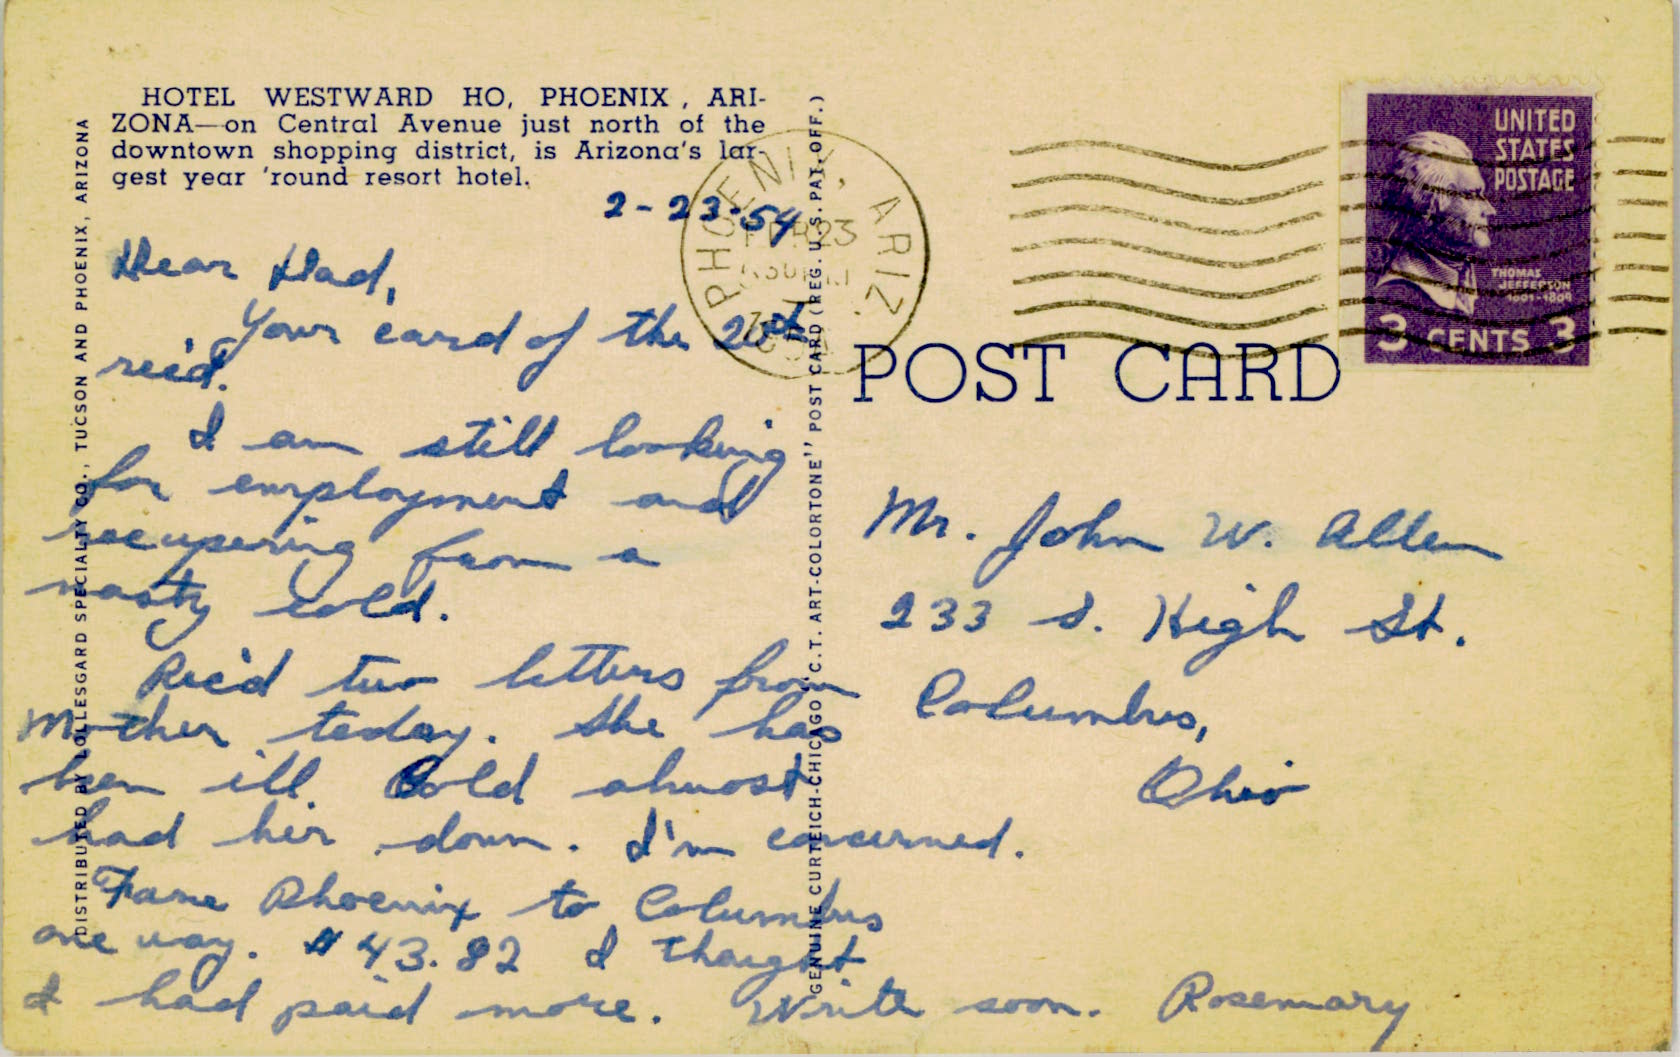 HOTEL WESTWARD HO, PHOENIX, ARI-
ZONA—on Central Avenue just north of the
downtown shopping district, is Arizona's lar-
gest year 'round resort hotel.
2-23-54
Dear Dad,
Your card of the 20th
rec'd.
I am still looking
for employment and
recupering from a
nasty cold.
Rec'd two letters from
Mother today. She has
been ill. Cold almost
had her down. I'm concerned.
Fare Phoenix to Columbus
one way. $43.82 I thought
I had paid more. Write soon. Rosemary
DISTRIBUTED BY LOLLESGARD SPECIALTY CO., TUCSON AND PHOENIX, ARIZONA
GENUINE CURTEICH-CHICAGO "C.T. ART-COLORTONE" POST CARD (REG. U.S. PAT. OFF.)
PHOENIX, ARIZ.
FEB 23
UNITED
STATES
POSTAGE
THOMAS
JEFFERSON
1801-1809
3 CENTS 3
POST CARD
Mr. John W. Allen
233 S. High St.
Columbus,
Ohio